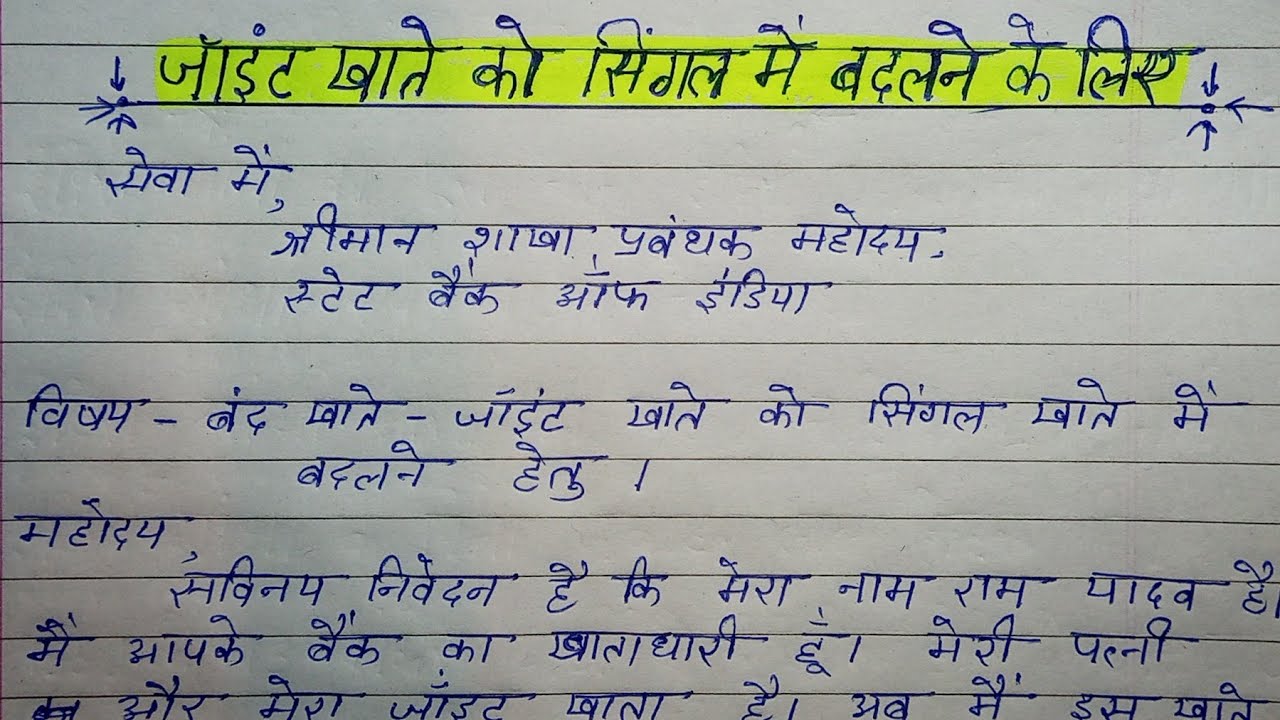 जॉइंट खाते को सिंगल में बदलने के लिए
सेवा में,
श्रीमान शाखा प्रबंधक महोदय,
स्टेट बैंक ऑफ इंडिया
विषय - बंद खाते - जॉइंट खाते को सिंगल खाते में
बदलने हेतु ।
महोदय,
सविनय निवेदन है कि मेरा नाम राम यादव है।
मैं आपके बैंक का खाताधारी हूँ। मेरी पत्नी
और मेरा जॉइट खाता है। अब मैं इस खाते